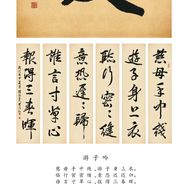 慈母手中綫
遊子身上衣
臨行密密縫
意恐遲遲歸
誰言寸草心
報得三春暉
游子吟
慈母手中线，游子身上衣。
临行密密缝，意恐迟迟归。
谁言寸草心，报得三春晖。